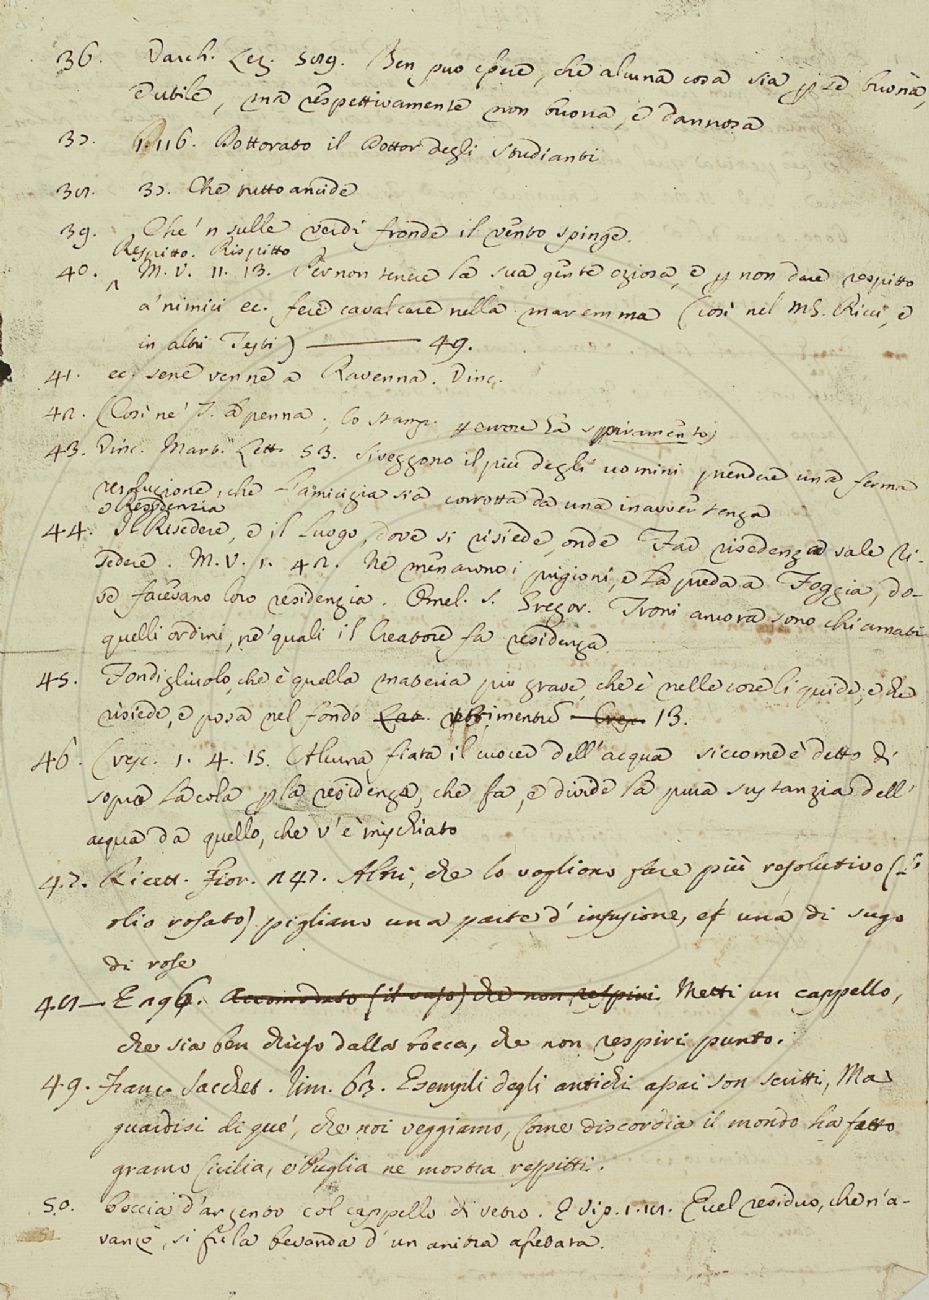 36. Varch. Lez. 519. Ben può essere, che alcuna cosa sia p se buona,
e utile, ma respettivamente non buona, e dannosa
37. 1. 116. Dottorato il Dottor degli Studianti
38. 37. Che tutto ancide
39. Che 'n sulle verdi fronde il vento spinge.
Respitto. Rispitto
40. M. V. 11. 13. Per non tenere la sua gente oziosa, e p non dare respitto
a' nimici ec. fece cavalcare nella maremma (così nel MS. Ricci, e
in altri Testi) — 49.
41. ec. sene venne a Ravenna. Vinc.
42. (Così ne' T. a penna, lo stamp. p errore ha spiramento)
43. Vinc. Mart. Lett. 53. Si veggono il più degli uomini prendere una ferma
resoluzione, che l'amicizia sia corrotta da una inavvertenza
e Residenzia
44. Il Risedere, e il Luogo, dove si risiede, onde Far residenza vale Ri-
sedere. M. V. 1. 42. Ne menarono i prigioni, e la preda a Foggia, do-
ve facevano loro residenzia. Omel. S. Gregor. Troni ancora sono chiamati
quelli ordini, ne' quali il Creatore fa residenza
45. Fondigliuolo, che è quella materia più grave, che è nelle cose liquide, e che
risiede, e posa nel fondo Lat. Cresc. 13.
46. Cresc. 1. 4. 15. Alcuna fiata il cuocer dell'acqua siccome è detto di
sopra la cola p la residenza, che fa, e divide la pura sustanzia dell'
acqua da quello, che v'è mischiato
47. Ricett. Fior. 247. Altri, che lo vogliono fare più resolutivo (l'
olio rosato) pigliano una parte d'infusione, et una di sugo
di rose
48 — E 296. Accomodato (il vaso) che non respiri. Metti un cappello,
che sia ben chiuso dalla bocca, che non respiri punto.
49. Franc. Sacchet. rim. 63. Esempli degli antichi assai son scritti, Ma
guardisi di que', che noi veggiamo, Come discordia il mondo ha fatto
gramo Cicilia, e Puglia ne mostra respitti.
50. boccia d'argento col cappello di vetro. E Vip. 1. 18. Quel residuo, che n'a-
vanzò, si fu la bevanda d'un anitra assetata.